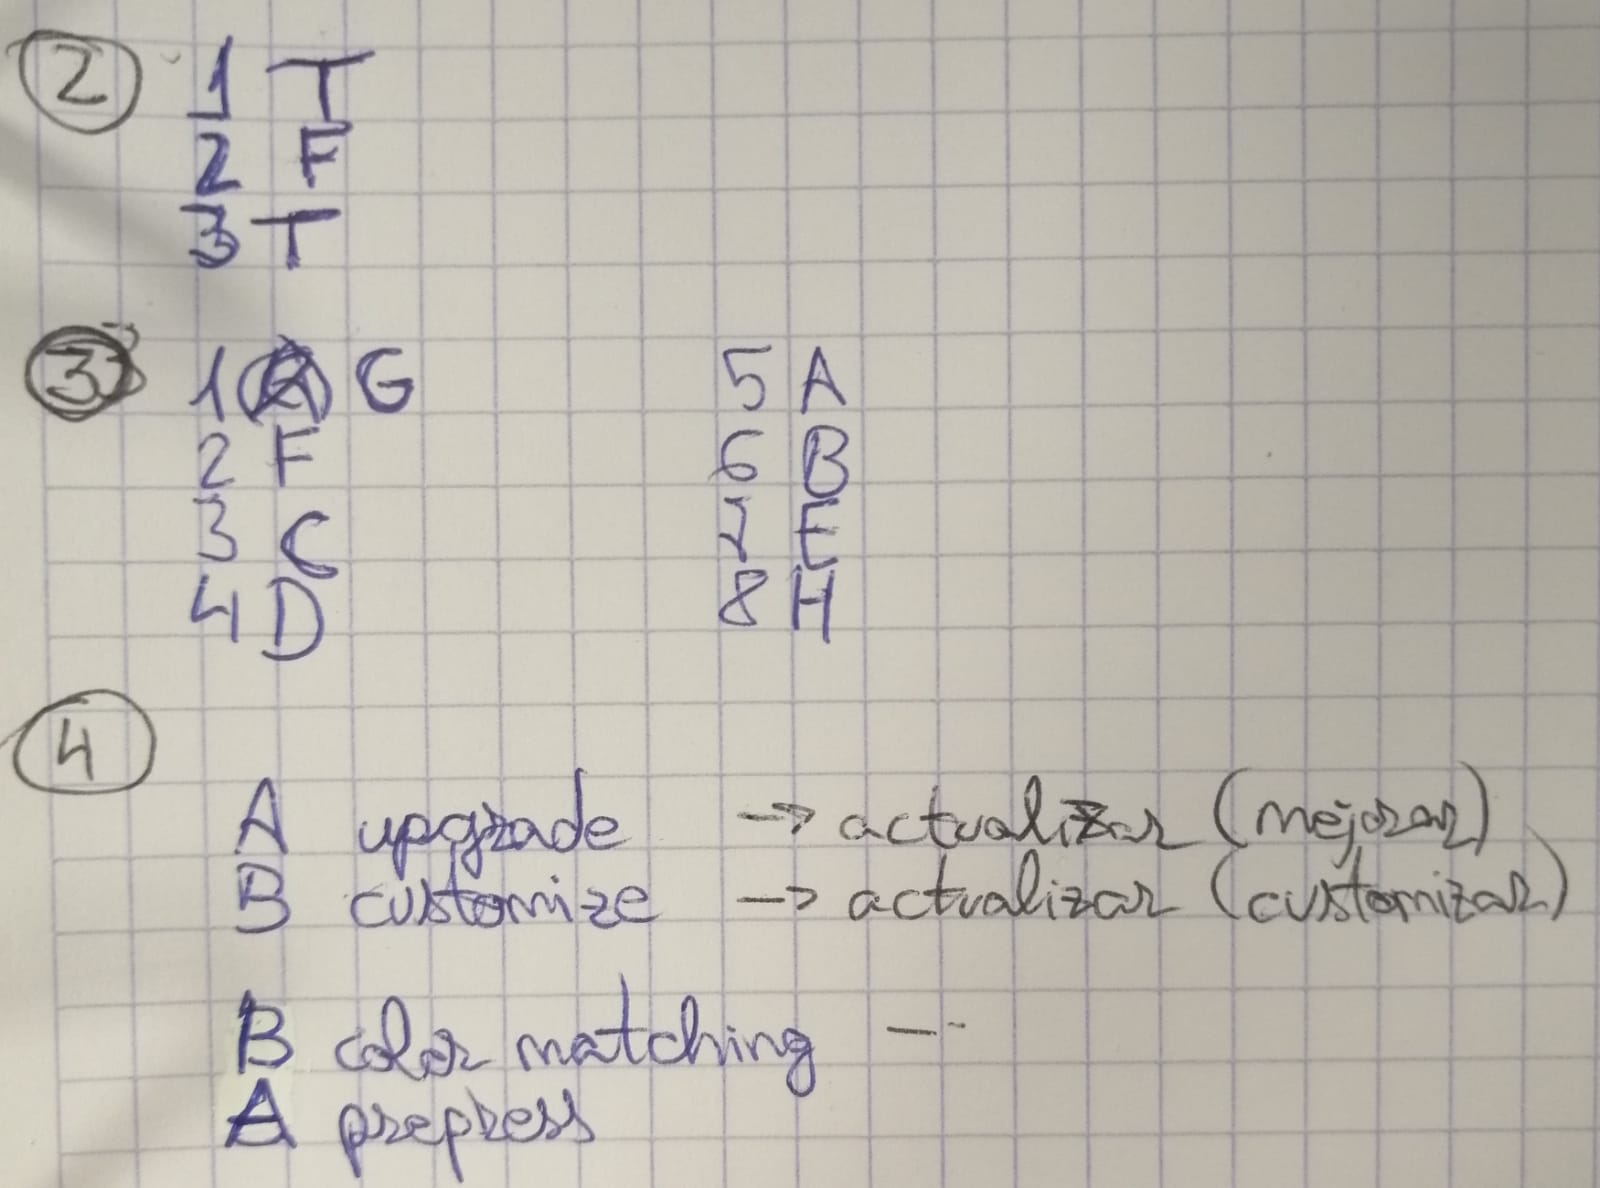 2
1 T
2 F
3 T
3
1 G
2 F
3 C
4 D
5 A
6 B
7 E
8 H
4
A upgrade -> actualizar (mejorar)
B customize -> actualizar (customizar)
B color matching --
A prepress